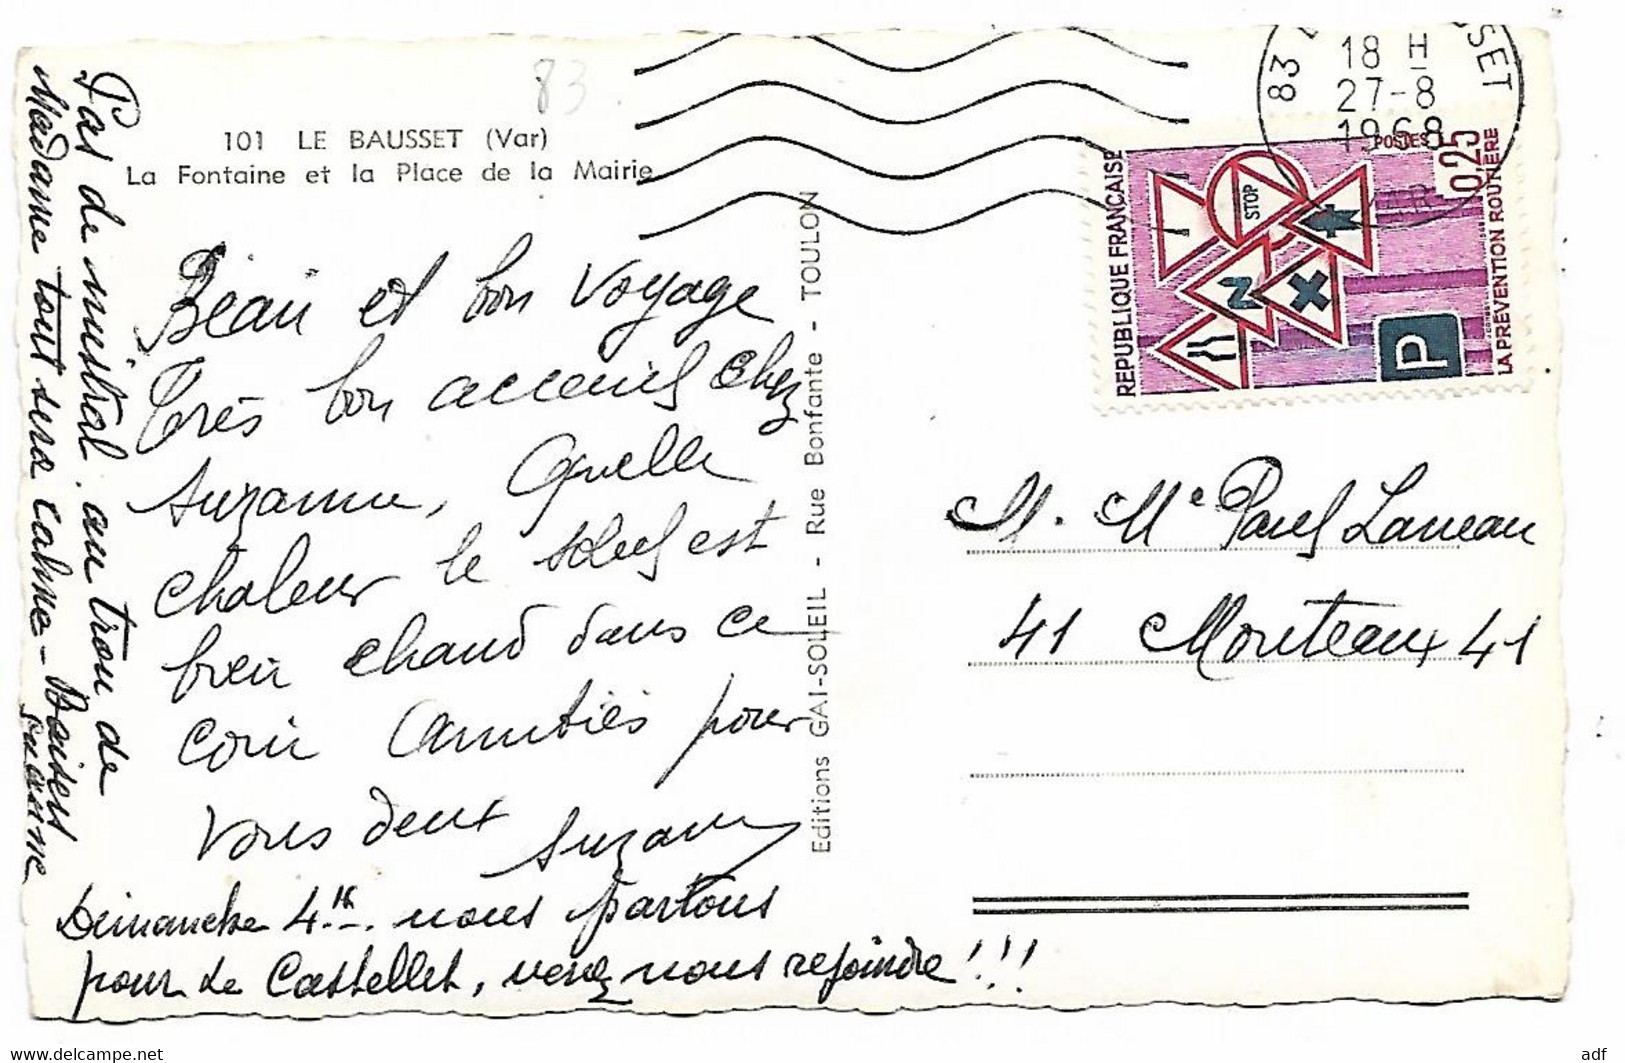 101 LE BAUSSET (Var)
La Fontaine et la Place de la Mairie
83
Beau et bon voyage
Très bon accueil chez
Suzanne, Quelle
chaleur le soleil est
bien chaud dans ce
coin Amitiés pour
vous deux
Suzanne
Dimanche 4h. nous partons
pour le Castellet, venez nous rejoindre !!!
Pas de mistral au trou de
Madame tout sera calme - Baisers
Suzanne
Editions GAI-SOLEIL - Rue Bonfante - TOULON
83 SSET
18 H
27-8
1968
REPUBLIQUE FRANÇAISE
POSTES
0,25
LA PRÉVENTION ROUTIÈRE
STOP
P
M. Me Paul Laneau
41 Monteaux 41
www.delcampe.net
adf